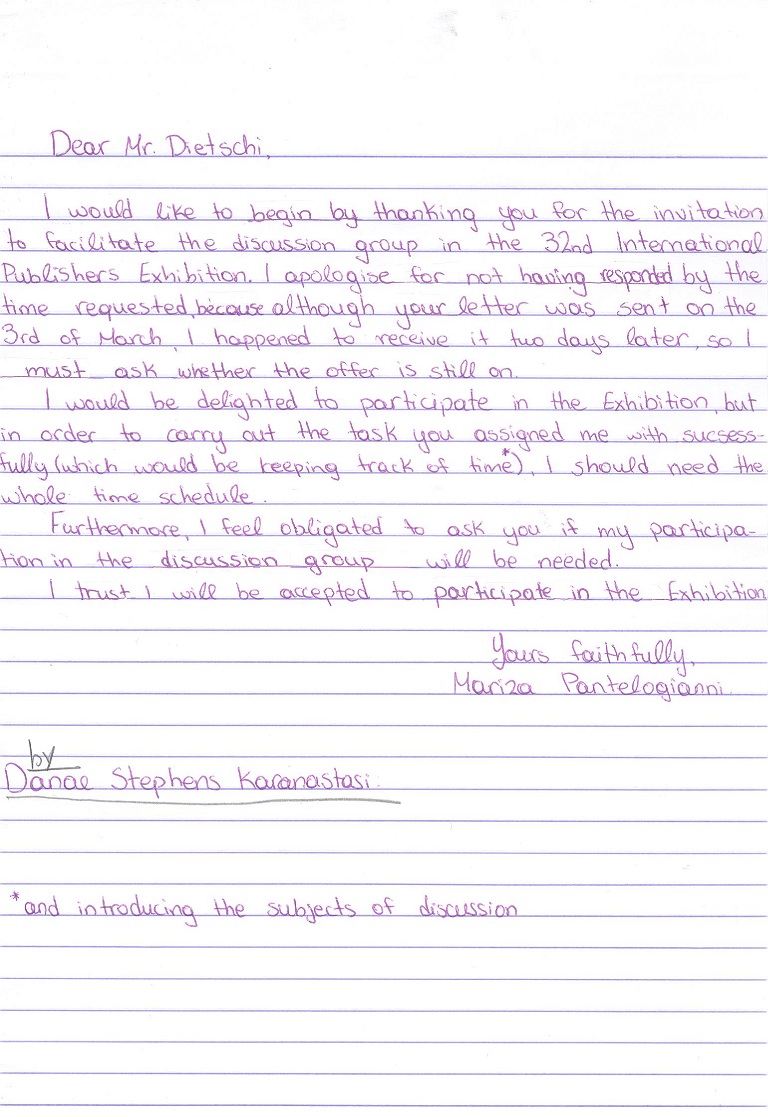 Dear Mr. Dietschi,
I would like to begin by thanking you for the invitation
to facilitate the discussion group in the 32nd International
Publishers Exhibition. I apologise for not having responded by the
time requested, because although your letter was sent on the
3rd of March, I happened to receive it two days later, so I
must ask whether the offer is still on.
I would be delighted to participate in the Exhibition, but
in order to carry out the task you assigned me with sucsess-
fully (which would be keeping track of time*), I should need the
whole time schedule.
Furthermore, I feel obligated to ask you if my participa-
tion in the discussion group will be needed.
I trust I will be accepted to participate in the Exhibition
Yours faithfully,
Mariza Pantelogianni.
by
Danae Stephens Karanastasi.
*and introducing the subjects of discussion